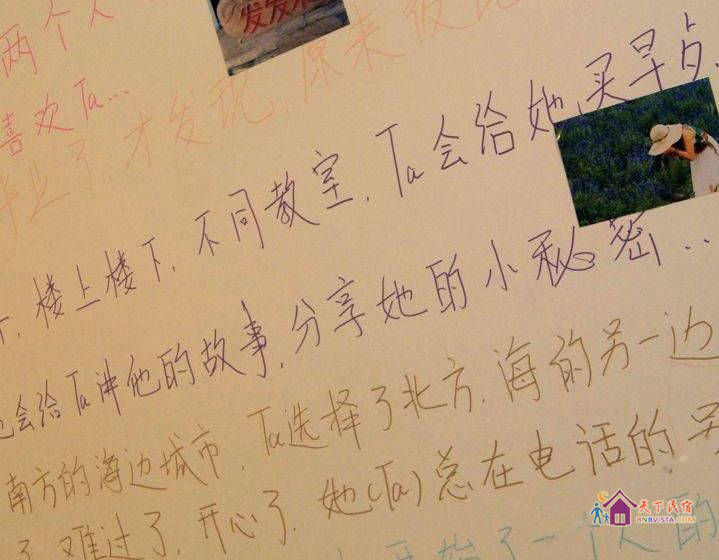 两个人
发发
喜欢Ta...
毕业了,才发现,原来彼此
楼上楼下,不同教室,Ta会给她买早点,
会给Ta讲他的故事,分享她的小秘密...
南方的海边城市,Ta选择了北方,海的另一边
难过了,开心了,她(Ta)总在电话的另
开始了一个人的
天下民宿
BNBVISTA.COM